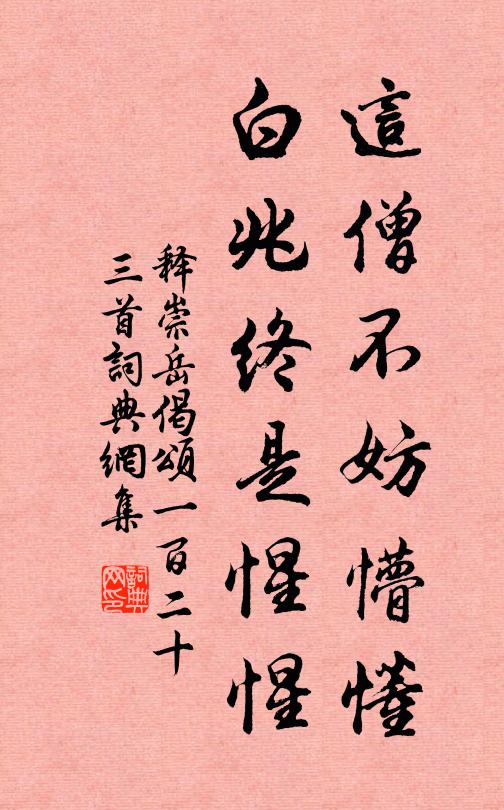 這僧不妨懵懂
白兆終是惺惺
釋崇岳偈頌一百二十
三首詞典網集
詞典网印